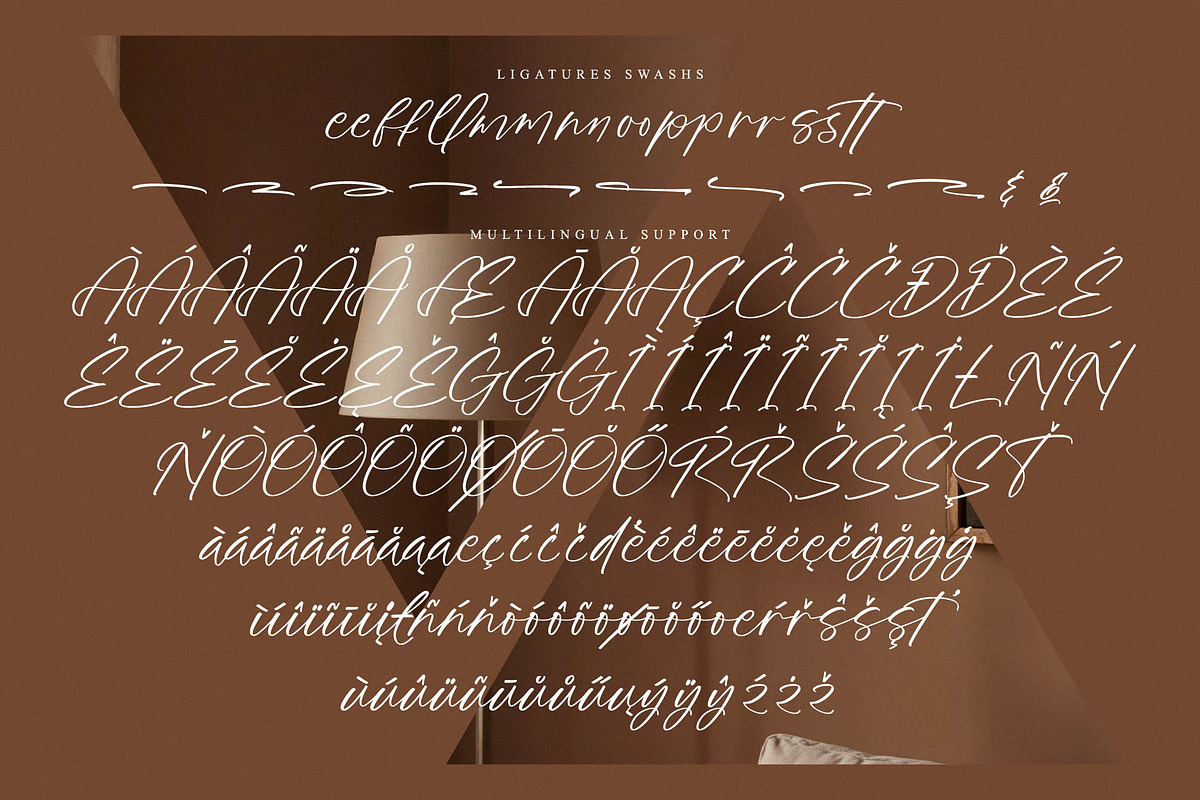 LIGATURES SWASHS
eeffllmmnnoopprrsstt
MULTILINGUAL SUPPORT
ÀÁÂÃÄÅÆĀĂĄÇĈĊČĐĎÈÉ
ÊËĒĔĖĘĚĜĞĠÌÍÎÏĨĪĬĮİŁÑŃ
ŇÒÓÔÕÖØŌŎŐŔŘŠŚŜŞŤ
àáâãäåāăąæçćĉčďèéêëēĕėęěĝğġģ
ìíîïĩīĭįłñńňòóôõöøōŏőœŕřŝšşť
ùúûüũūŭůűųýÿŷźżž